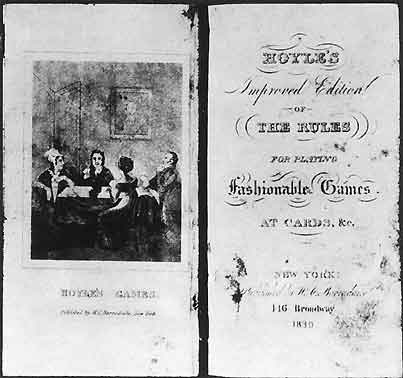 HOYLE'S GAMES.
Published by W.C. Borradaile, New York.
HOYLE'S
Improved Edition
OF
THE RULES
FOR PLAYING
Fashionable Games.
AT CARDS, &c.
NEW YORK:
Published by W. C. Borradaile
146 Broadway
1830